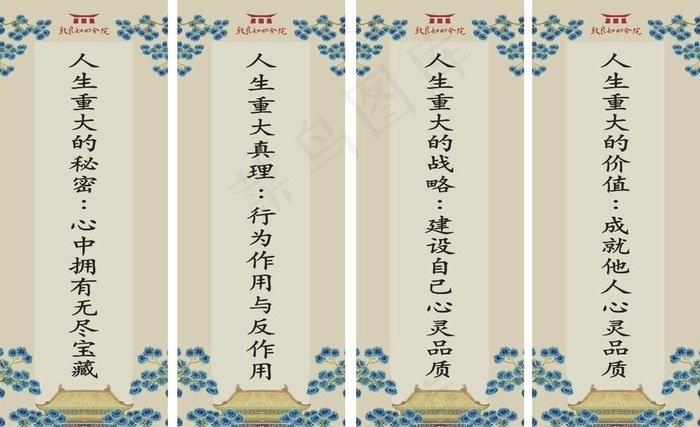 致良知四合院
人生重大的秘密：心中拥有无尽宝藏
致良知四合院
人生重大真理：行为作用与反作用
致良知四合院
人生重大的战略：建设自己心灵品质
致良知四合院
人生重大的价值：成就他人心灵品质
菜鸟图库